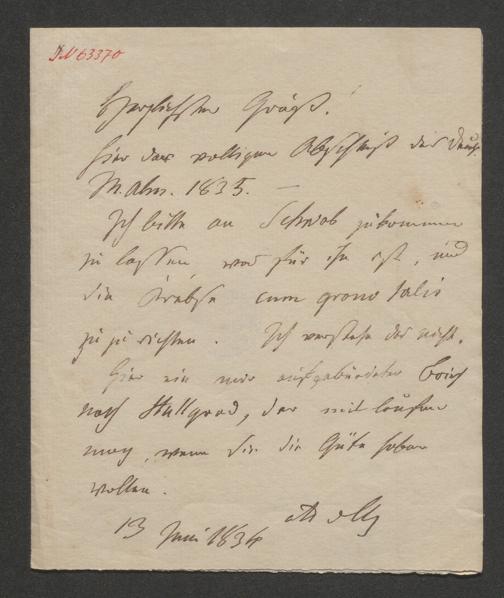 IN 63370
Herzlichsten Gruß!
hier der völligen Abschluß des Deutsch.
M.Alm. 1835. —
Ich bitte an Schwab zukommen
zu lassen was für ihn ist, und
die cum grano salis
zu zu richten. Ich verstehe das nicht.
Hier ein mir aufgebürdeter Brief
nach Stuttgard, der mit laufen
mag, wenn Sie die Güte haben
wollen.
13 Juni 1834